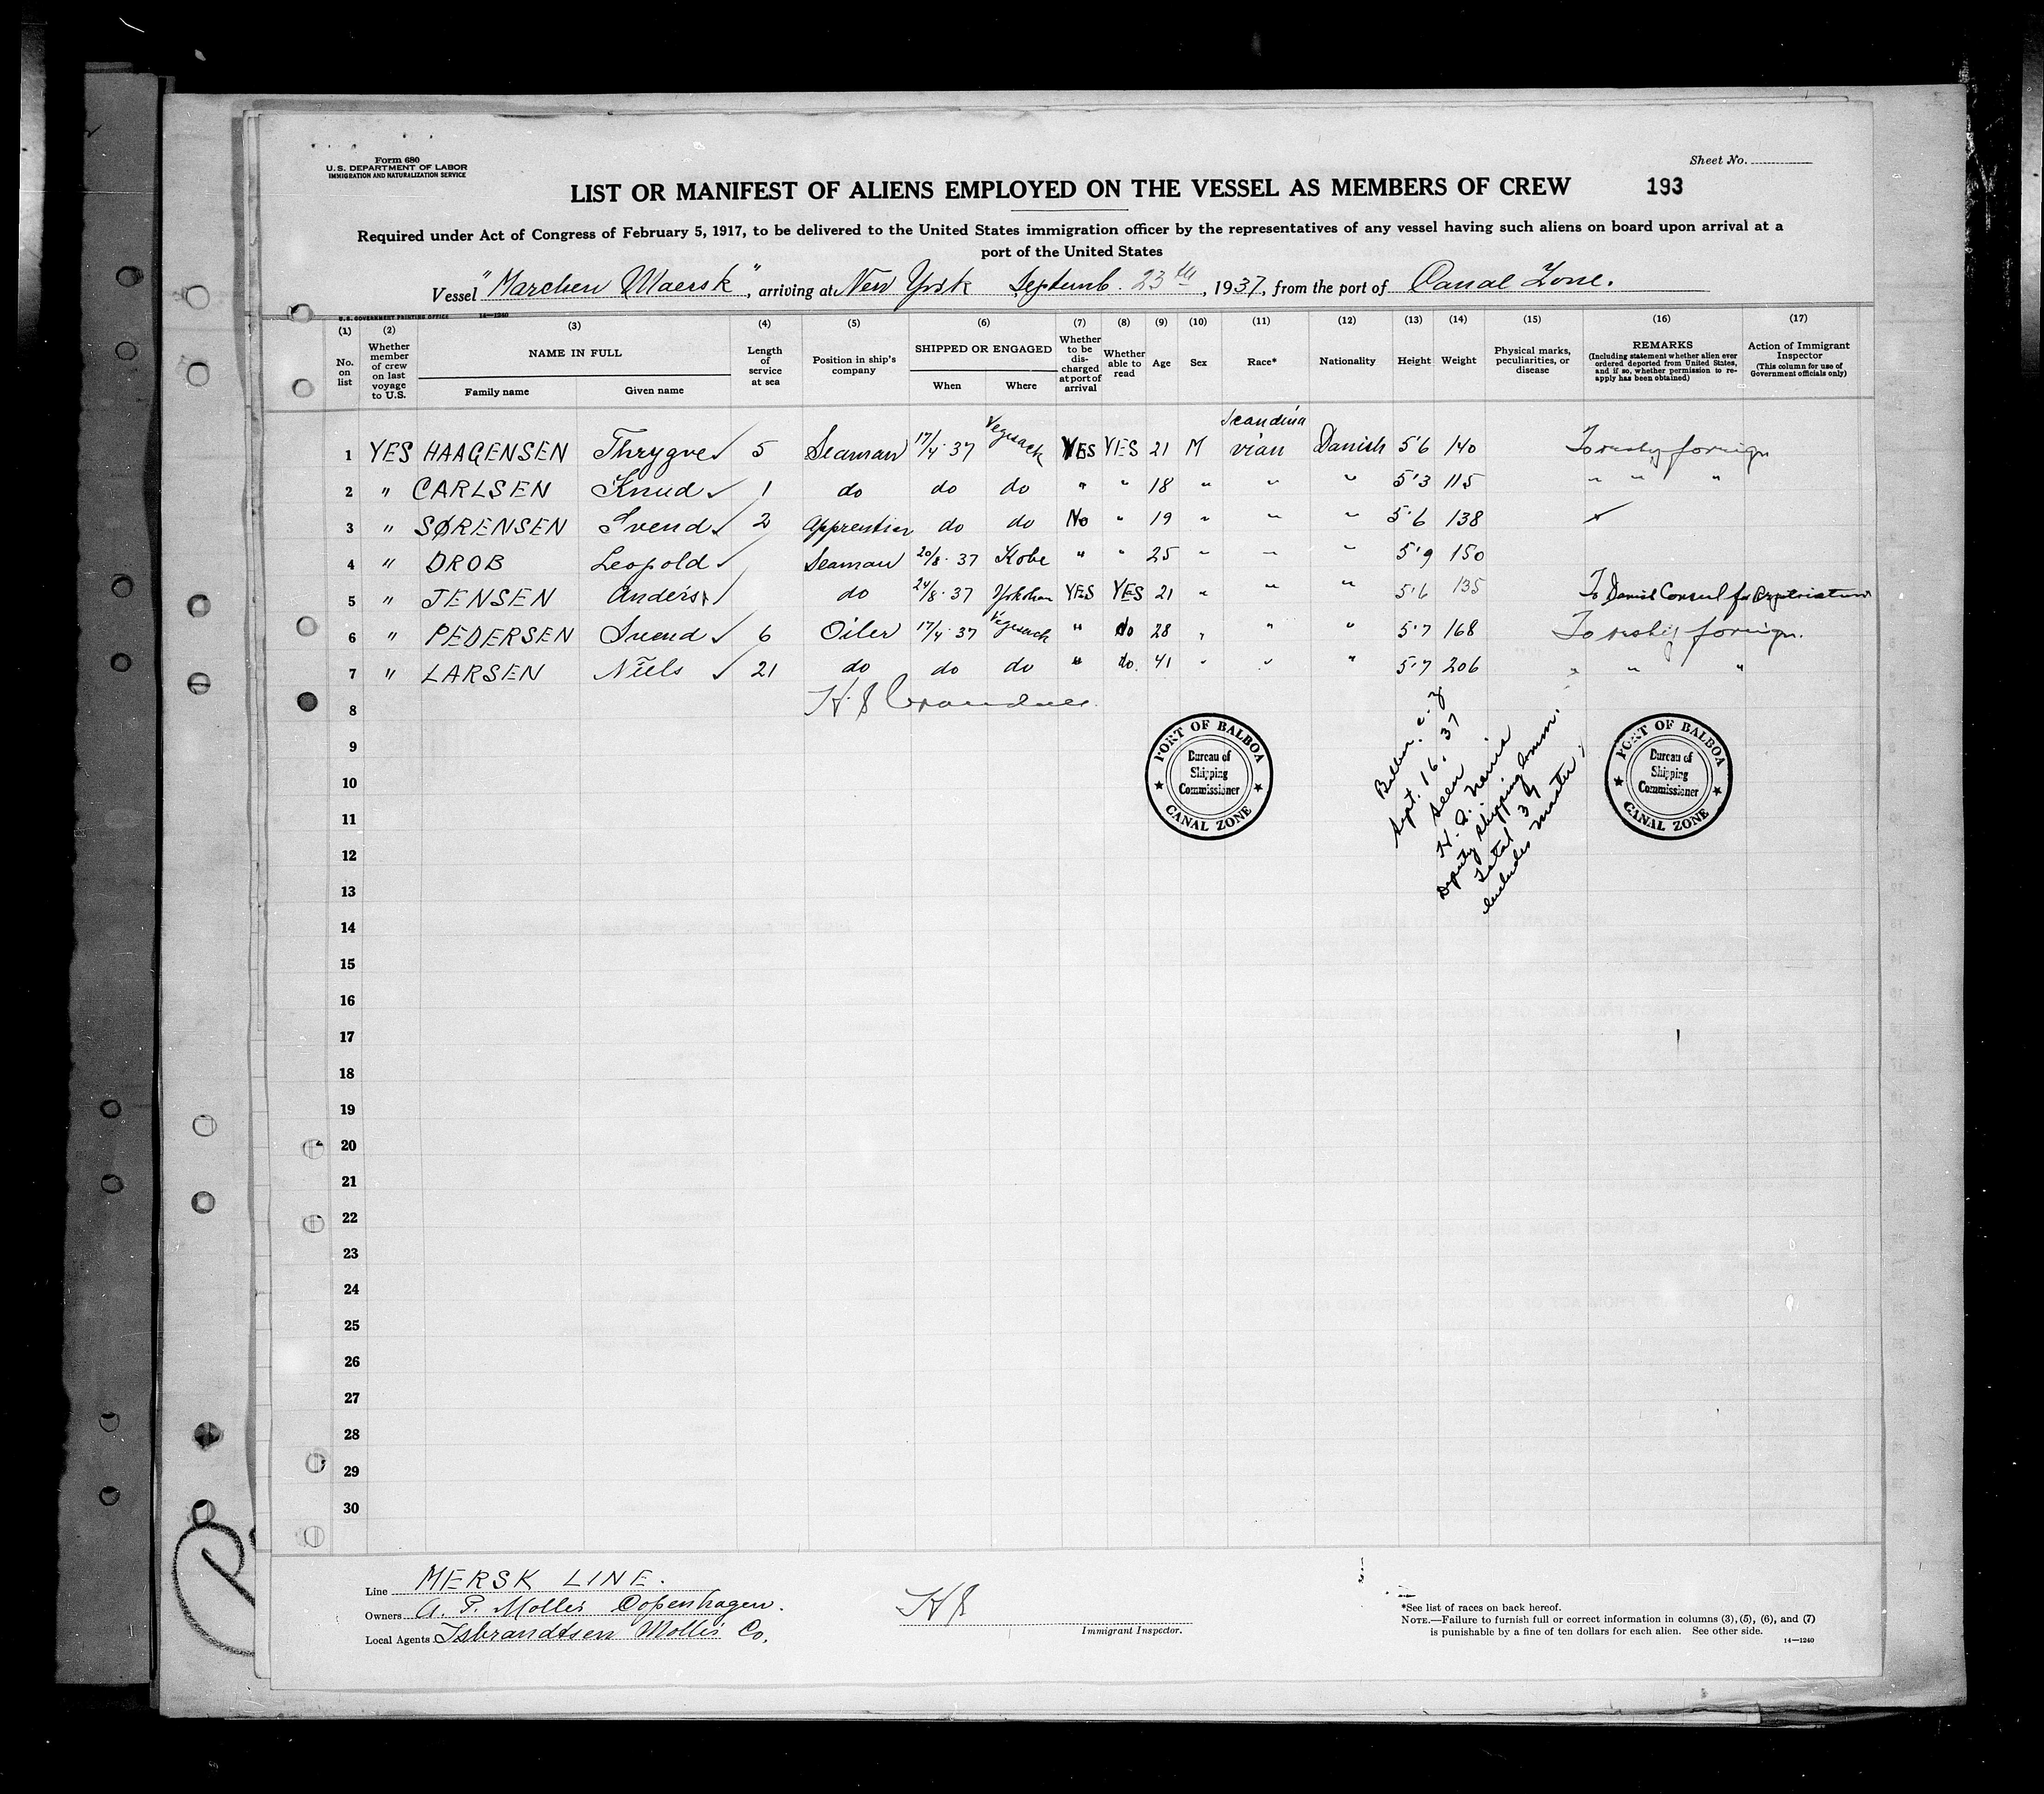 Form 680
U.S. DEPARTMENT OF LABOR
IMMIGRATION AND NATURALIZATION SERVICE
Sheet No.
LIST OR MANIFEST OF ALIENS EMPLOYED ON THE VESSEL AS MEMBERS OF CREW 193
Required under Act of Congress of February 5, 1917, to be delivered to the United States immigration officer by the representatives of any vessel having such aliens on board upon arrival at a
port of the United States
Vessel "Marchen Maersk", arriving at New York Septemb. 23th, 1937, from the port of Canal Zone.
U.S. GOVERNMENT PRINTING OFFICE 14—1240
(1) (2) (3) (4) (5) (6) (7) (8) (9) (10) (11) (12) (13) (14) (15) (16) (17)
No. on list
Whether member of crew on last voyage to U.S.
NAME IN FULL
Family name Given name
Length of service at sea
Position in ship's company
SHIPPED OR ENGAGED
When Where
Whether to be discharged at port of arrival
Whether able to read
Age
Sex
Race*
Nationality
Height
Weight
Physical marks, peculiarities, or disease
REMARKS
(Including statement whether alien ever ordered deported from United States, and if so, whether permission to reapply has been obtained)
Action of Immigrant Inspector
(This column for use of Government officials only)
1 YES HAAGENSEN Thrygve 5 Seaman 17/4·37 Vegesack YES YES 21 M Scandinavian Danish 5'6 140 To reship foreign
2 " CARLSEN Knud 1 do do do " " 18 " " " 5'3 115 " " "
3 " SØRENSEN Svend 2 Apprentice do do No " 19 " " " 5'6 138 x
4 " DROB Leopold Seaman 20/8·37 Kobe " " 25 " " " 5'9 150
5 " JENSEN Anders do 24/8·37 Yokoham YES YES 21 " " " 5'6 135 To Danish Consul for Repatriation
6 " PEDERSEN Svend 6 Oiler 17/4·37 Vegesack " do 28 " " " 5'7 168 To reship foreign.
7 " LARSEN Niels 21 do do do " do. 41 " " " 5'7 206 " " "
8
9
10
11
12
13
14
15
16
17
18
19
20
21
22
23
24
25
26
27
28
29
30
PORT OF BALBOA
Bureau of
Shipping
Commissioner
CANAL ZONE
Balboa, C. Z
Sept. 16, 37
Seen
Deputy Shipping Comm.
Total 34
Includes Master
PORT OF BALBOA
Bureau of
Shipping
Commissioner
CANAL ZONE
Line MERSK LINE.
Owners A. P. Moller Copenhagen.
Local Agents Isbrandtsen Moller Co.
Immigrant Inspector.
*See list of races on back hereof.
NOTE.—Failure to furnish full or correct information in columns (3), (5), (6), and (7)
is punishable by a fine of ten dollars for each alien. See other side.
14—1240